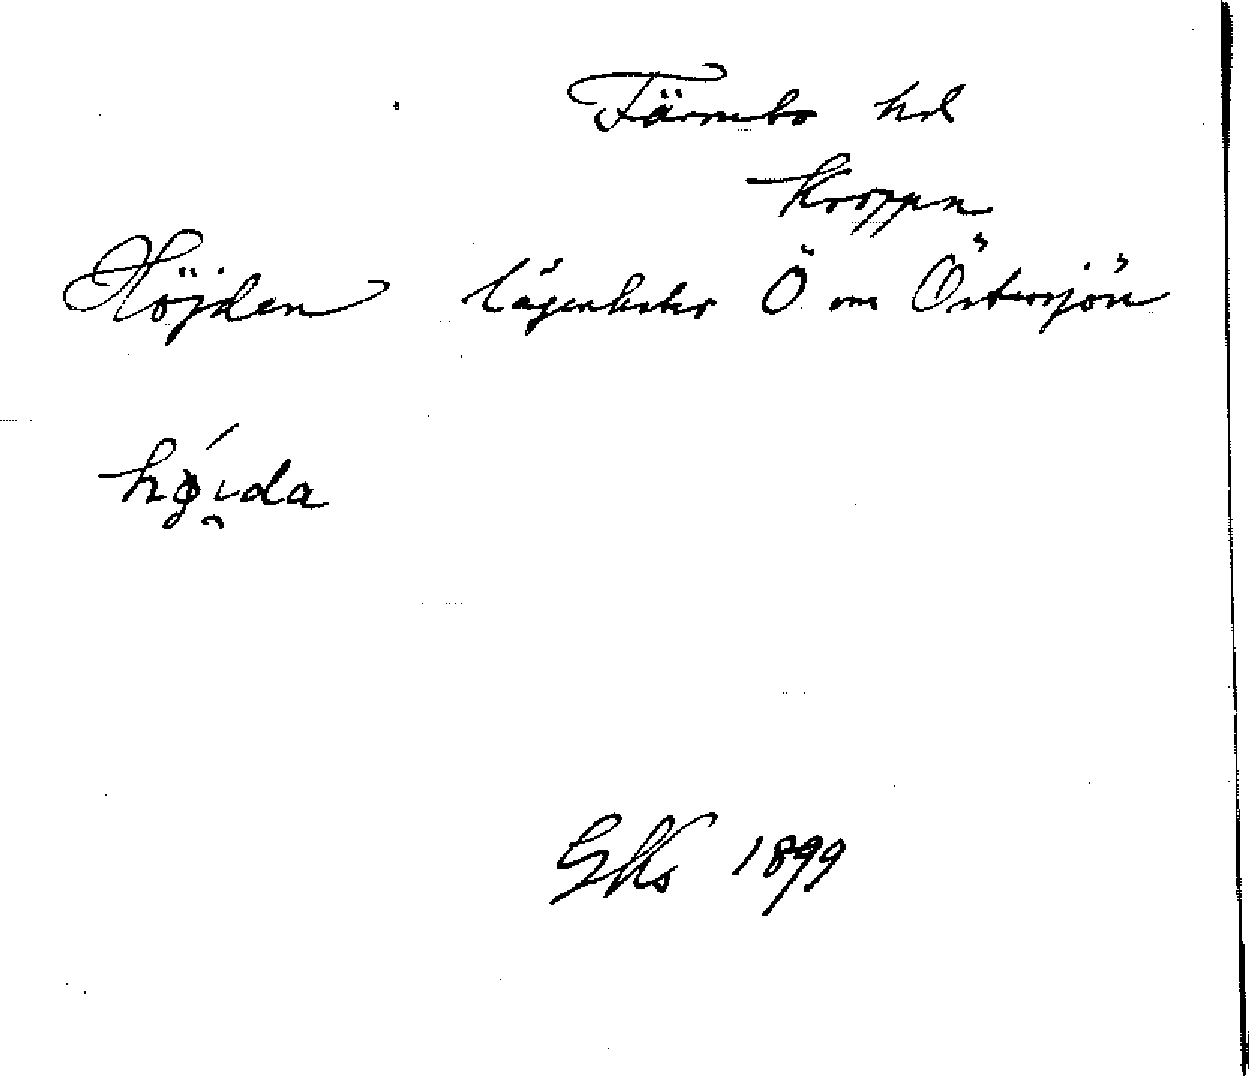 Färnebo hd
Kroppa
Höjden lägenheter Ö om Östersjön
hǿ̨i̯da
GKs 1899